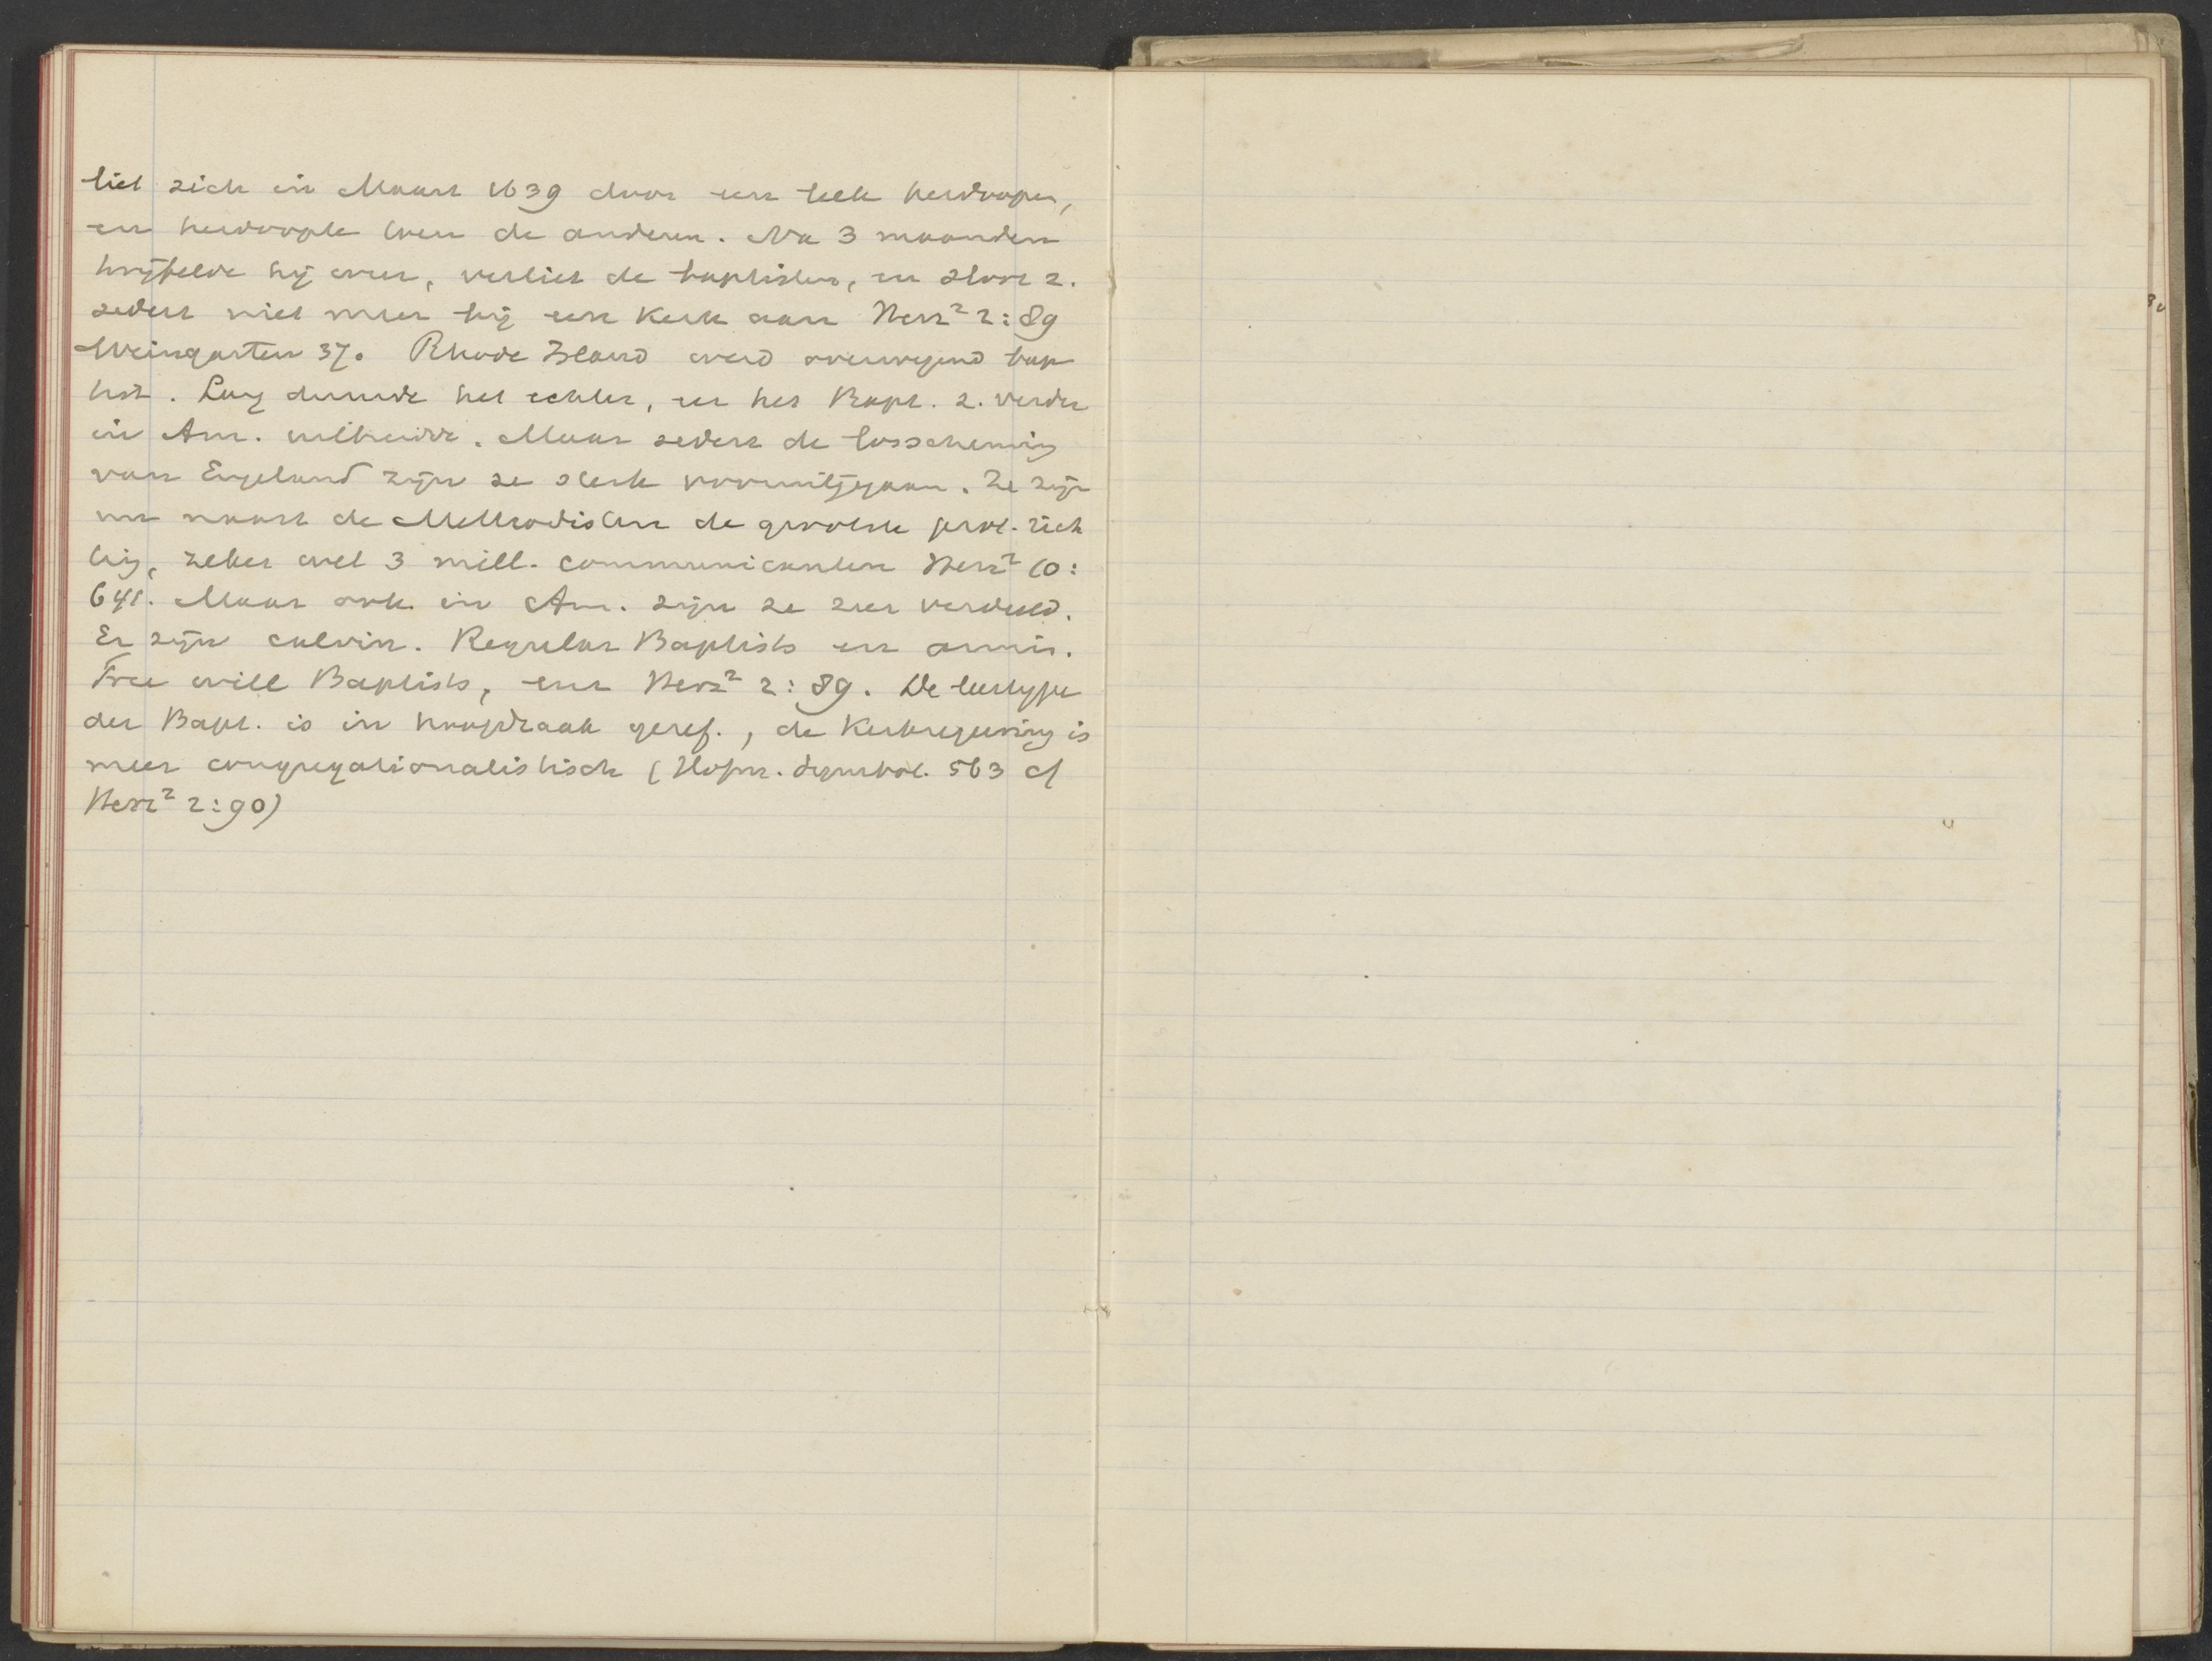 liet zich in Maart 1639 door een leek herdoopen,
en herdoopte toen de anderen. Na 3 maanden
twijfelde hij weer, verliet de baptisten, en sloot z.
sedert niet meer bij een kerk aan Herz² 2:89
Weingarten 37. Rhode Island werd overwegend bap
tist. Lang duurde het echter, eer het Bapt. z. verder
in Am. uitbreidde. Maar sedert de losscheuring
van Engeland zijn ze sterk vooruitgegaan. Ze zijn
nu naast de Methodisten de grootste prot. rich
ting, zeker wel 3 mill. communicanten Herz² 10:
641. Maar ook in Am. zijn ze zeer verdeeld.
Er zijn calvin. Regular Baptists en armin.
Free will Baptists, enz Herz² 2:89. De leertype
der Bapt. is in hoofdzaak geref., de kerkregeering is
meer congregationalistisch (Hofm. Symbol. 563 cf
Herz² 2:90)